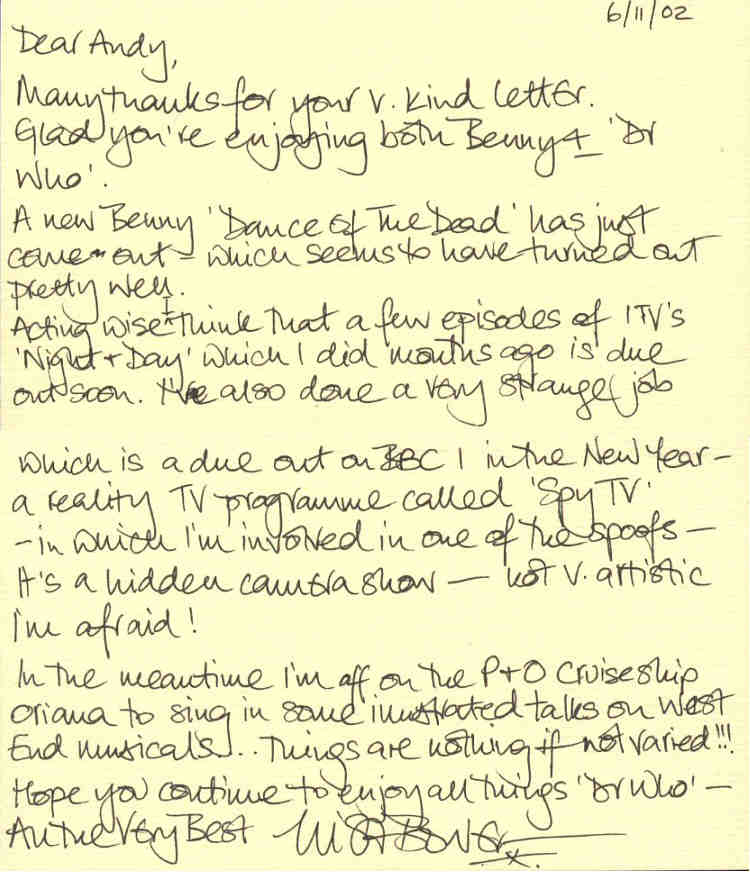 6/11/02
Dear Andy,
Many thanks for your v. kind letter.
Glad you're enjoying both Benny + 'Dr
Who'.
A new Benny 'Dance Of The Dead' has just
come out – which seems to have turned out
pretty well.
Acting wise I think that a few episodes of ITV's
'Night + Day' which I did months ago is due
out soon. I've also done a very strange job
which is a due out on BBC 1 in the New Year –
a reality TV programme called 'Spy TV'
– in which I'm involved in one of the spoofs –
It's a hidden camera show — not v. artistic
I'm afraid!
In the meantime I'm off on the P+O Cruiseship
Oriana to sing in some illustrated talks on West
End musicals... Things are nothing if not varied!!!
Hope you continue to enjoy all things 'Dr Who' –
All the Very Best